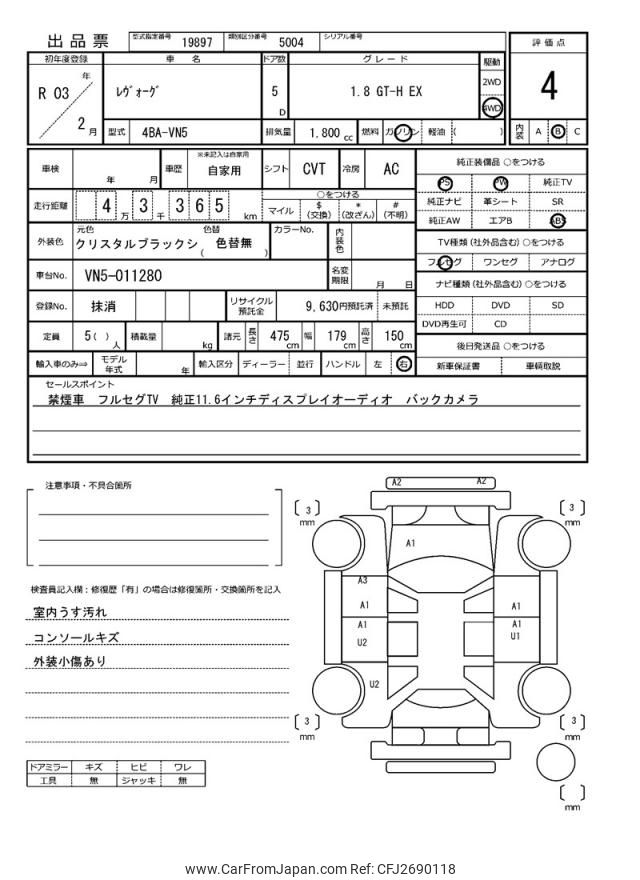 出品票 型式指定番号 19897 類別区分番号 5004 シリアル番号
初年度登録 車名 ドア数 グレード 駆動 評価点
R 03 年 2 月 ﾚヴｫｰｸﾞ 5 D 1.8 GT-H EX 2WD 4WD 4
型式 4BA-VN5 排気量 1,800 cc 燃料 ガソリン 軽油 ( ) 内装 A B C
車検 年 月 車歴 ※未記入は自家用 自家用 シフト CVT 冷房 AC
走行距離 4 万 3 千 3 6 5 km ○をつける マイル $ (交換) * (改ざん) # (不明)
外装色 元色 クリスタルブラックシ 色替 ( 色替無 ) カラーNo. 内装色
車台No. VN5-011280 名変期限 月 日
登録No. 抹消 リサイクル預託金 9,630円預託済 未預託
定員 5( ) 人 積載量 kg 諸元 長さ 475 cm 幅 179 cm 高さ 150 cm
輸入車のみ⇒ モデル年式 年 輸入区分 ディーラー 並行 ハンドル 左 右
純正装備品 ○をつける
PS PW 純正TV
純正ナビ 革シート SR
純正AW エアB ABS
TV種類 (社外品含む) ○をつける
フルセグ ワンセグ アナログ
ナビ種類 (社外品含む) ○をつける
HDD DVD SD
DVD再生可 CD
後日発送品 ○をつける
新車保証書 車輌取説
セールスポイント
禁煙車 フルセグTV 純正11.6インチディスプレイオーディオ バックカメラ
注意事項・不具合箇所
検査員記入欄：修復歴「有」の場合は修復箇所・交換箇所を記入
室内うす汚れ
コンソールキズ
外装小傷あり
ドアミラー キズ ヒビ ワレ
工具 無 ジャッキ 無
A2 A2
3 mm 3 mm
A1
A3
A1 A1
A1 A1
U2 U1
U2
3 mm 3 mm
mm
www.CarFromJapan.com Ref: CFJ2690118